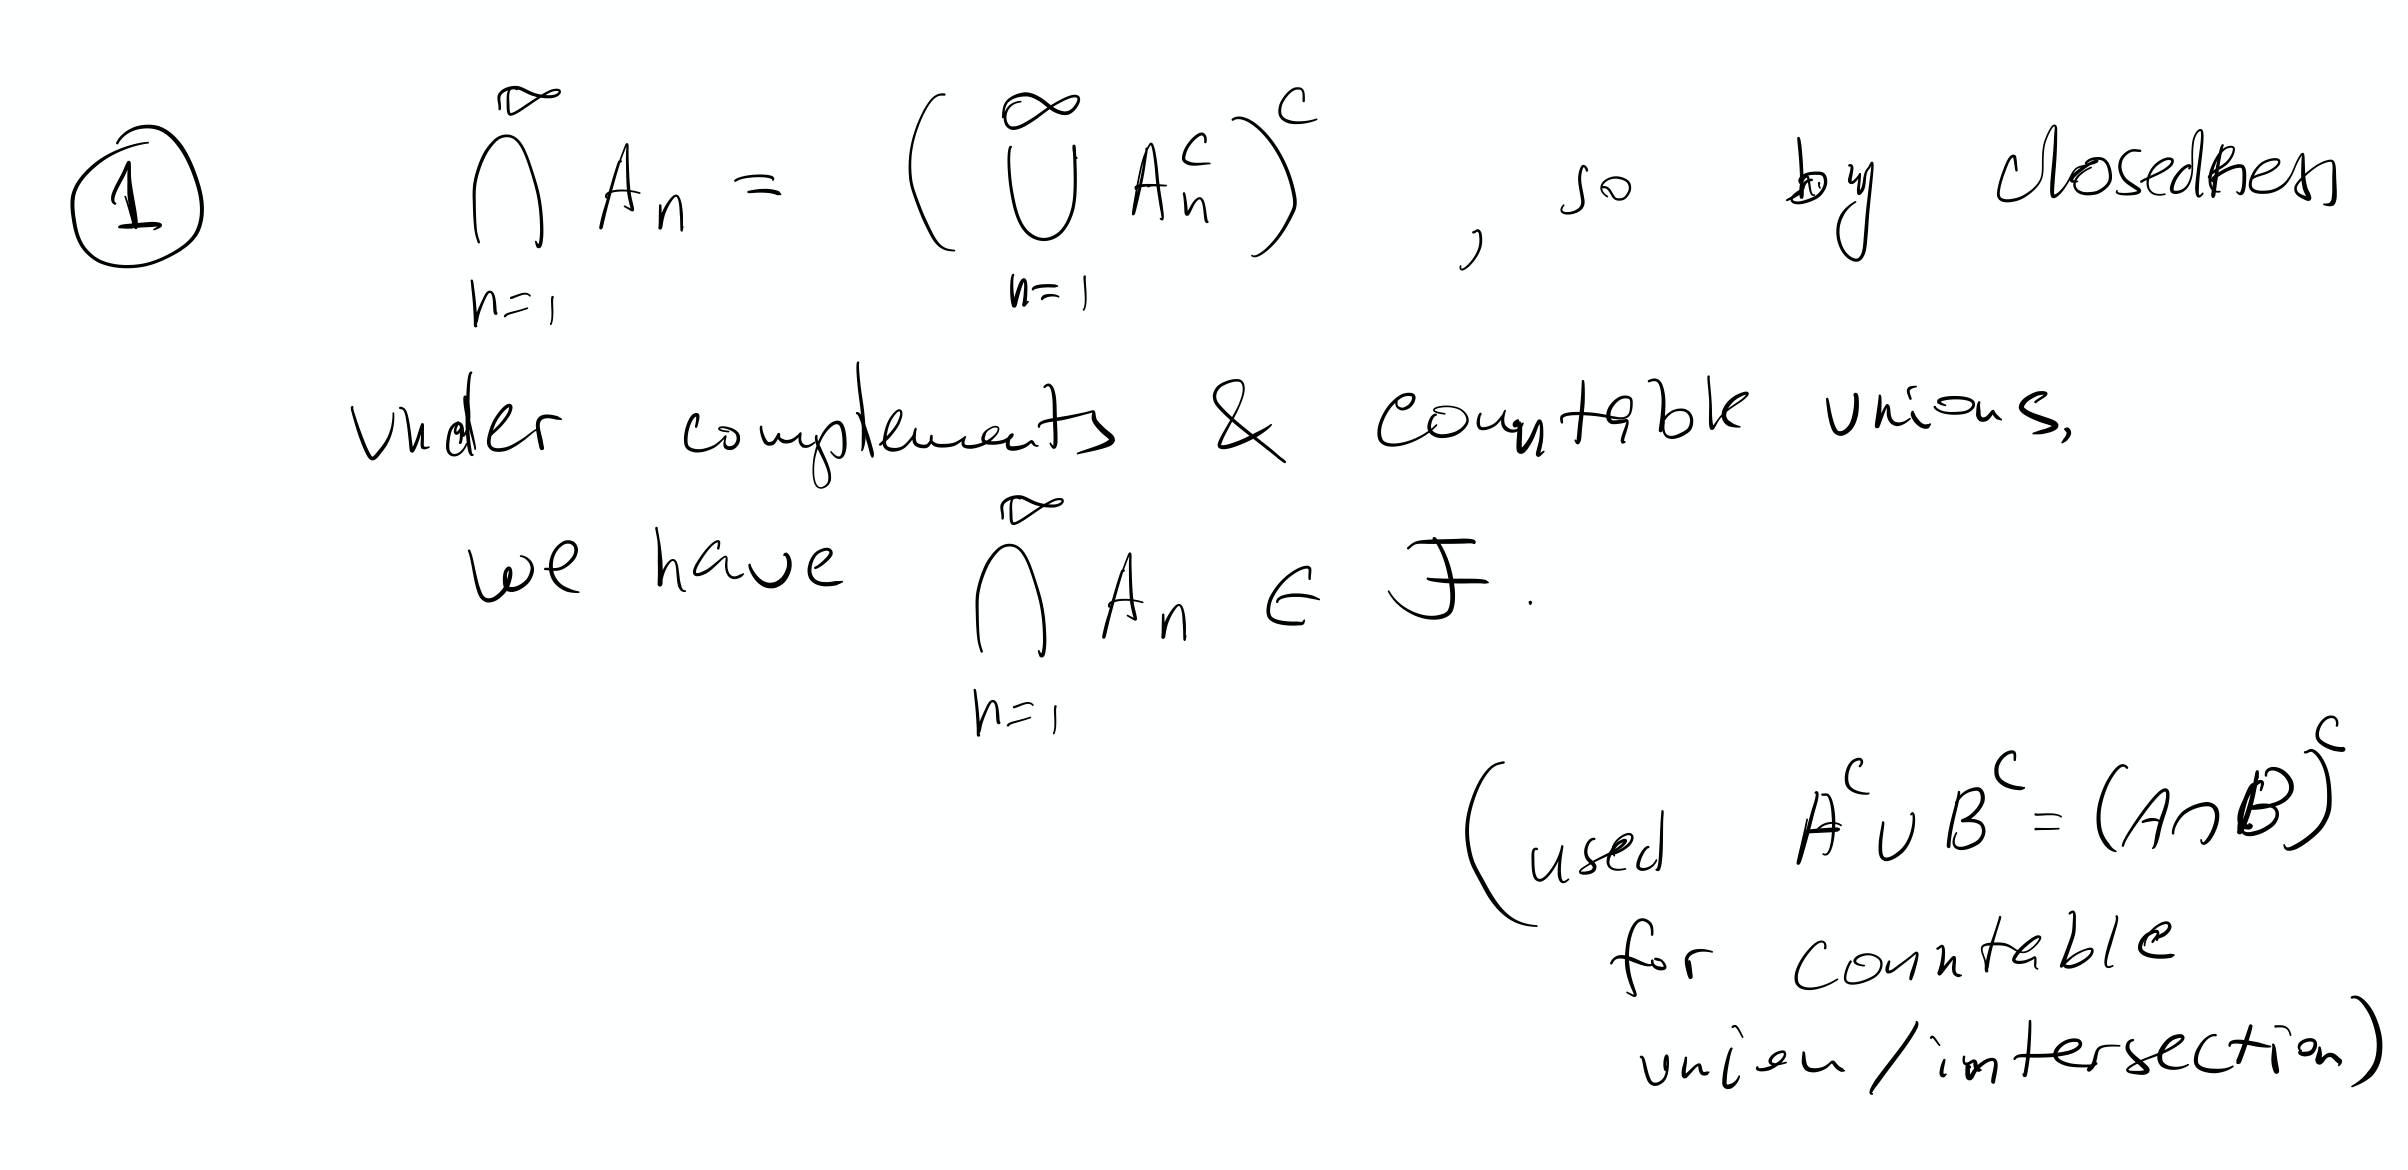 ① ⋂_{n=1}^{∞} A_n = (⋃_{n=1}^{∞} A_n^c)^c , so by closedness
under complements & countable unions,
we have ⋂_{n=1}^{∞} A_n ∈ F.
(used A^c ∪ B^c = (A∩B)^c
for countable
union/intersection)